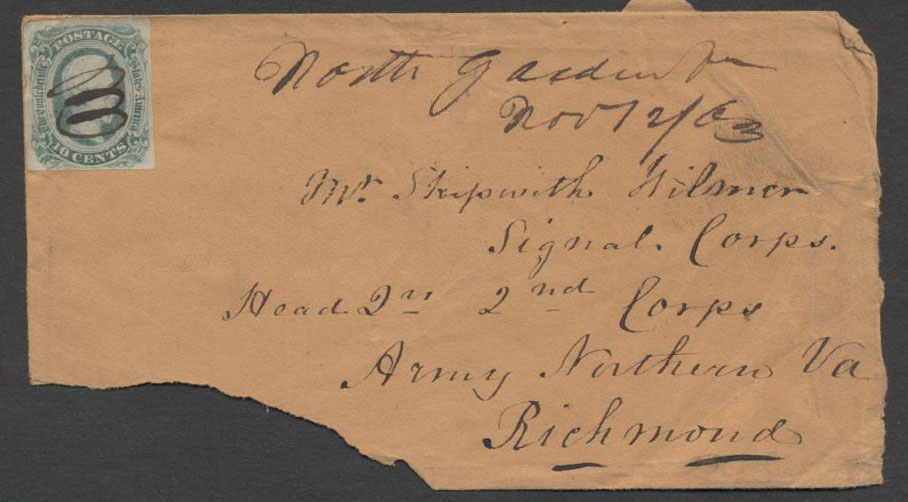 POSTAGE
Confederate States America
10 CENTS
North Garden Va
Nov 12/63
Mr. Skipwith Wilmer
Signal Corps.
Head Qrs 2nd Corps
Army Northern Va
Richmond